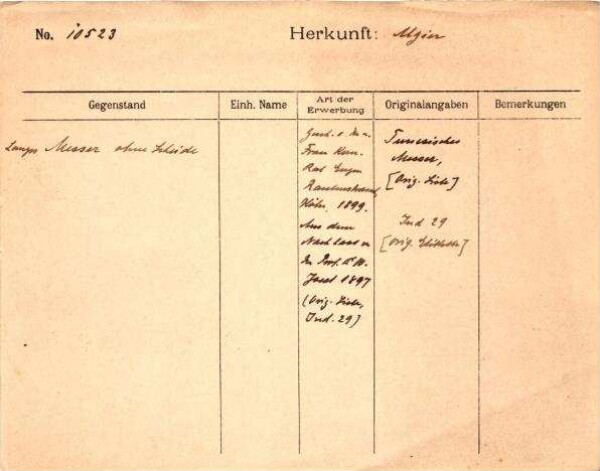 No. 10523
Herkunft: Algier
Gegenstand
Einh. Name
Art der
Erwerbung
Originalangaben
Bemerkungen
Langes Messer ohne Scheide
Gesch. v. H. u.
Frau Kom.
Rat Eugen
Rautenstrauch
Köln, 1899.
Aus dem
Nachlass v.
Prof. Dr. W.
Joest 1897
(Orig. Liste,
Ind. 29)
Tunesisches
Messer,
[Orig. Liste]
Ind 29
[Orig. Etikette]